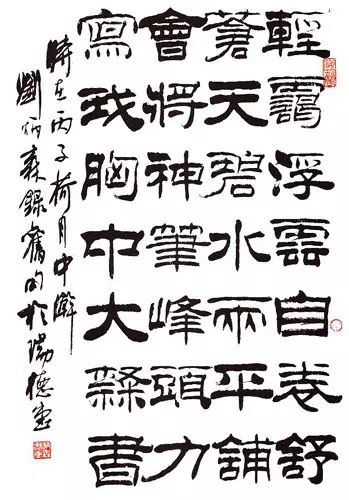 輕靄浮雲自卷舒
蒼天碧水兩平舖
會將神筆峰頭力
寫我胸中大隸書
時在丙子荷月中澣
劉炳森錄舊句於